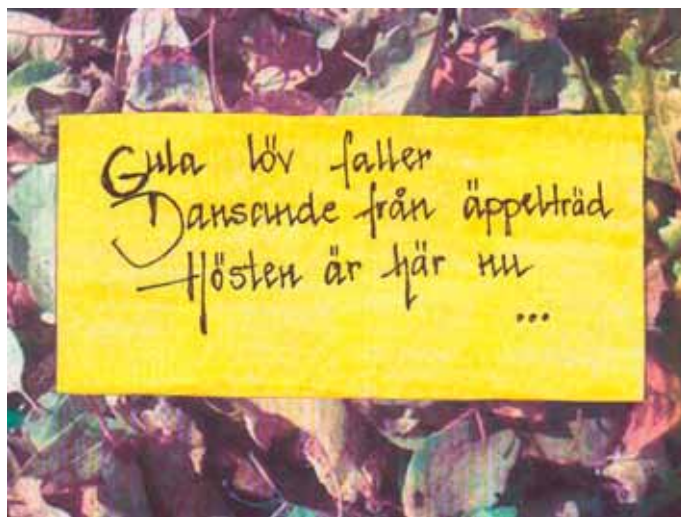 Gula löv faller
Dansande från äppelträd
Hösten är här nu
...